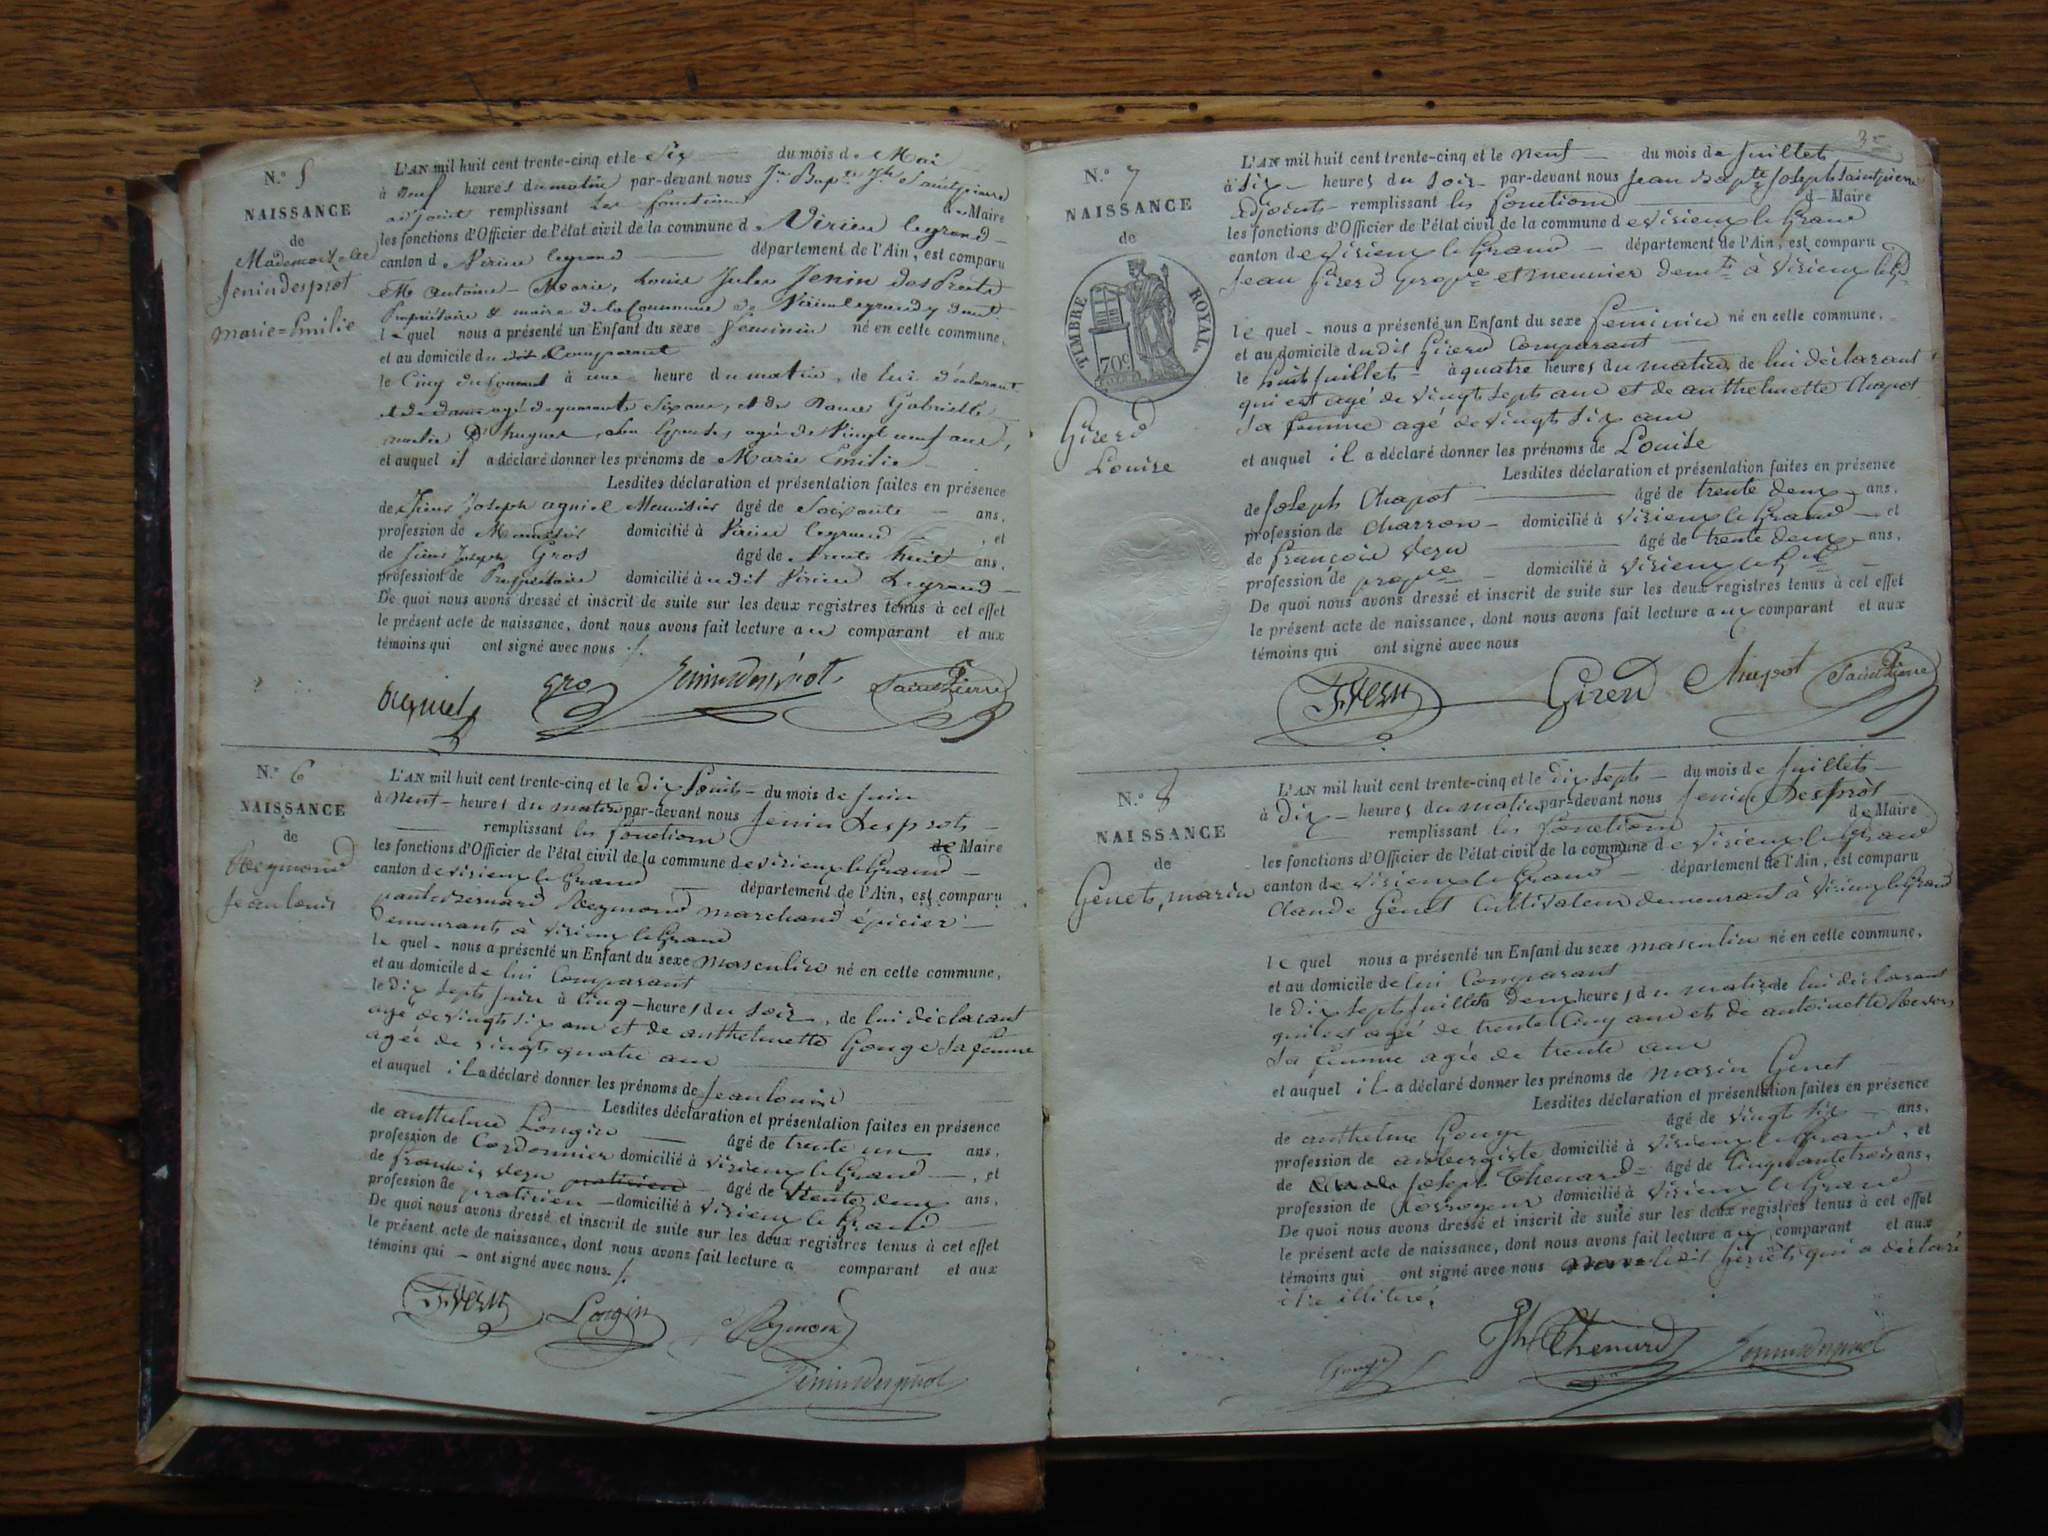 N.° 5
NAISSANCE
de
Mademoiselle
Jenindesprot
Marie=Emilie
L'AN mil huit cent trente-cinq et le Six du mois de Mai
à neuf heures du matin par-devant nous Jn Bapte Jh Saintpierre
adjoint remplissant les fonctions de Maire
les fonctions d'Officier de l'état civil de la commune d Virieu legrand
canton d Virieu legrand département de l'Ain, est comparu
Mr Antoine Marie, Louis Jules Jenin des Prots
Propriétaire & maire de la Commune de Virieu legrand y demt
lequel nous a présenté un Enfant du sexe féminin né en cette commune,
et au domicile du dit Comparant
le Cinq du Courant à une heure du matin, de lui déclarant
agé de quarante Six ans, et de Dame Gabrielle
son Epouse, agée de Vingt neuf ans,
et auquel il a déclaré donner les prénoms de Marie Emilie
Lesdites déclaration et présentation faites en présence
de Sieur Joseph agniel Menuisier âgé de Soixante ans,
profession de Menuisier domicilié à Virieu legrand , et
de Sieur Joseph Gros âgé de trente huit ans,
profession de Propriétaire domicilié à udit Virieu Legrand
De quoi nous avons dressé et inscrit de suite sur les deux registres tenus à cet effet
le présent acte de naissance, dont nous avons fait lecture au comparant et aux
témoins qui ont signé avec nous ./.
agniel Gros Jenindesprot SaintPierre
N.° 6
NAISSANCE
de
Reymond
Jean louis
L'AN mil huit cent trente-cinq et le Dix huit du mois de Juin
à neuf heures du matin par-devant nous Jenin Desprots
remplissant les fonctions de Maire
les fonctions d'Officier de l'état civil de la commune de Virieux le Grand
canton de Virieux le Grand département de l'Ain, est comparu
Bernard Reymond marchand épicier
Demeurant à Virieux le Grand
lequel nous a présenté un Enfant du sexe masculin né en cette commune,
et au domicile de lui Comparant
le Dix Sept Juin à Cinq heures du Soir, de lui déclarant
agé de vingt six ans et de anthelmette Gouge sa femme
agée de vingt quatre ans
et auquel il a déclaré donner les prénoms de Jean louis
Lesdites déclaration et présentation faites en présence
de anthelme Longin âgé de trente un ans,
profession de Cordonnier domicilié à Virieux le Grand , et
de francis Veru praticien âgé de trente deux ans,
profession de praticien domicilié à Virieux le Grand
De quoi nous avons dressé et inscrit de suite sur les deux registres tenus à cet effet
le présent acte de naissance, dont nous avons fait lecture a comparant et aux
témoins qui ont signé avec nous. /.
F. Veru Longin Reymond
Jenindesprot
35
N.° 7
NAISSANCE
de
TIMBRE ROYAL.
70c
Girerd
Louise
L'AN mil huit cent trente-cinq et le neuf du mois de Juillet
à Six heures du Soir par-devant nous Jean Bapte Joseph Saintpierre
adjoint remplissant les fonctions d Maire
les fonctions d'Officier de l'état civil de la commune de Virieux le Grand
canton de Virieux le Grand département de l'Ain, est comparu
Jean Girerd propre et meunier demt à Virieux le Gd
lequel nous a présenté un Enfant du sexe feminin né en cette commune,
et au domicile dudit Girerd Comparant
le huit Juillet à quatre heures du matin, de lui déclarant
qui est agé de vingt sept ans et de anthelmette Chapot
Sa femme agé de vingt six ans
et auquel il a déclaré donner les prénoms de Louise
Lesdites déclaration et présentation faites en présence
de Joseph Chapot âgé de trente deux ans,
profession de Charron domicilié à Virieux le Grand et
de François Veru âgé de trente deux ans,
profession de propre domicilié à Virieux le Gd
De quoi nous avons dressé et inscrit de suite sur les deux registres tenus à cet effet
le présent acte de naissance, dont nous avons fait lecture au comparant et aux
témoins qui ont signé avec nous
F. Veru Girerd Chapot SaintPierre
N.° 8
NAISSANCE
de
Genet, marin
L'AN mil huit cent trente-cinq et le Dix Sept du mois de Juillet
à Dix heures du matin par-devant nous Jenin Desprots
remplissant les fonctions de Maire
les fonctions d'Officier de l'état civil de la commune de Virieux le Grand
canton de Virieux le Grand département de l'Ain, est comparu
Claude Genet Cultivateur demeurant à Virieux le Grand
lequel nous a présenté un Enfant du sexe masculin né en cette commune,
et au domicile de lui Comparant
le Dix Sept Juillet à Deux heures du matin de lui déclarant
qui est agé de trente Cinq ans et de antoinette
Sa femme agée de trente ans
et auquel il a déclaré donner les prénoms de marin Genet
Lesdites déclaration et présentation faites en présence
de anthelme Gouge âgé de vingt six ans,
profession de aubergiste domicilié à Virieux le Grand , et
de Joseph Thenard âgé de Cinquante trois ans,
profession de domicilié à Virieux le Grand
De quoi nous avons dressé et inscrit de suite sur les deux registres tenus à cet effet
le présent acte de naissance, dont nous avons fait lecture au comparant et aux
témoins qui ont signé avec nous ledit Genet qui a déclaré
être illitéré,
Gouge Jh Thenard Jenindesprot